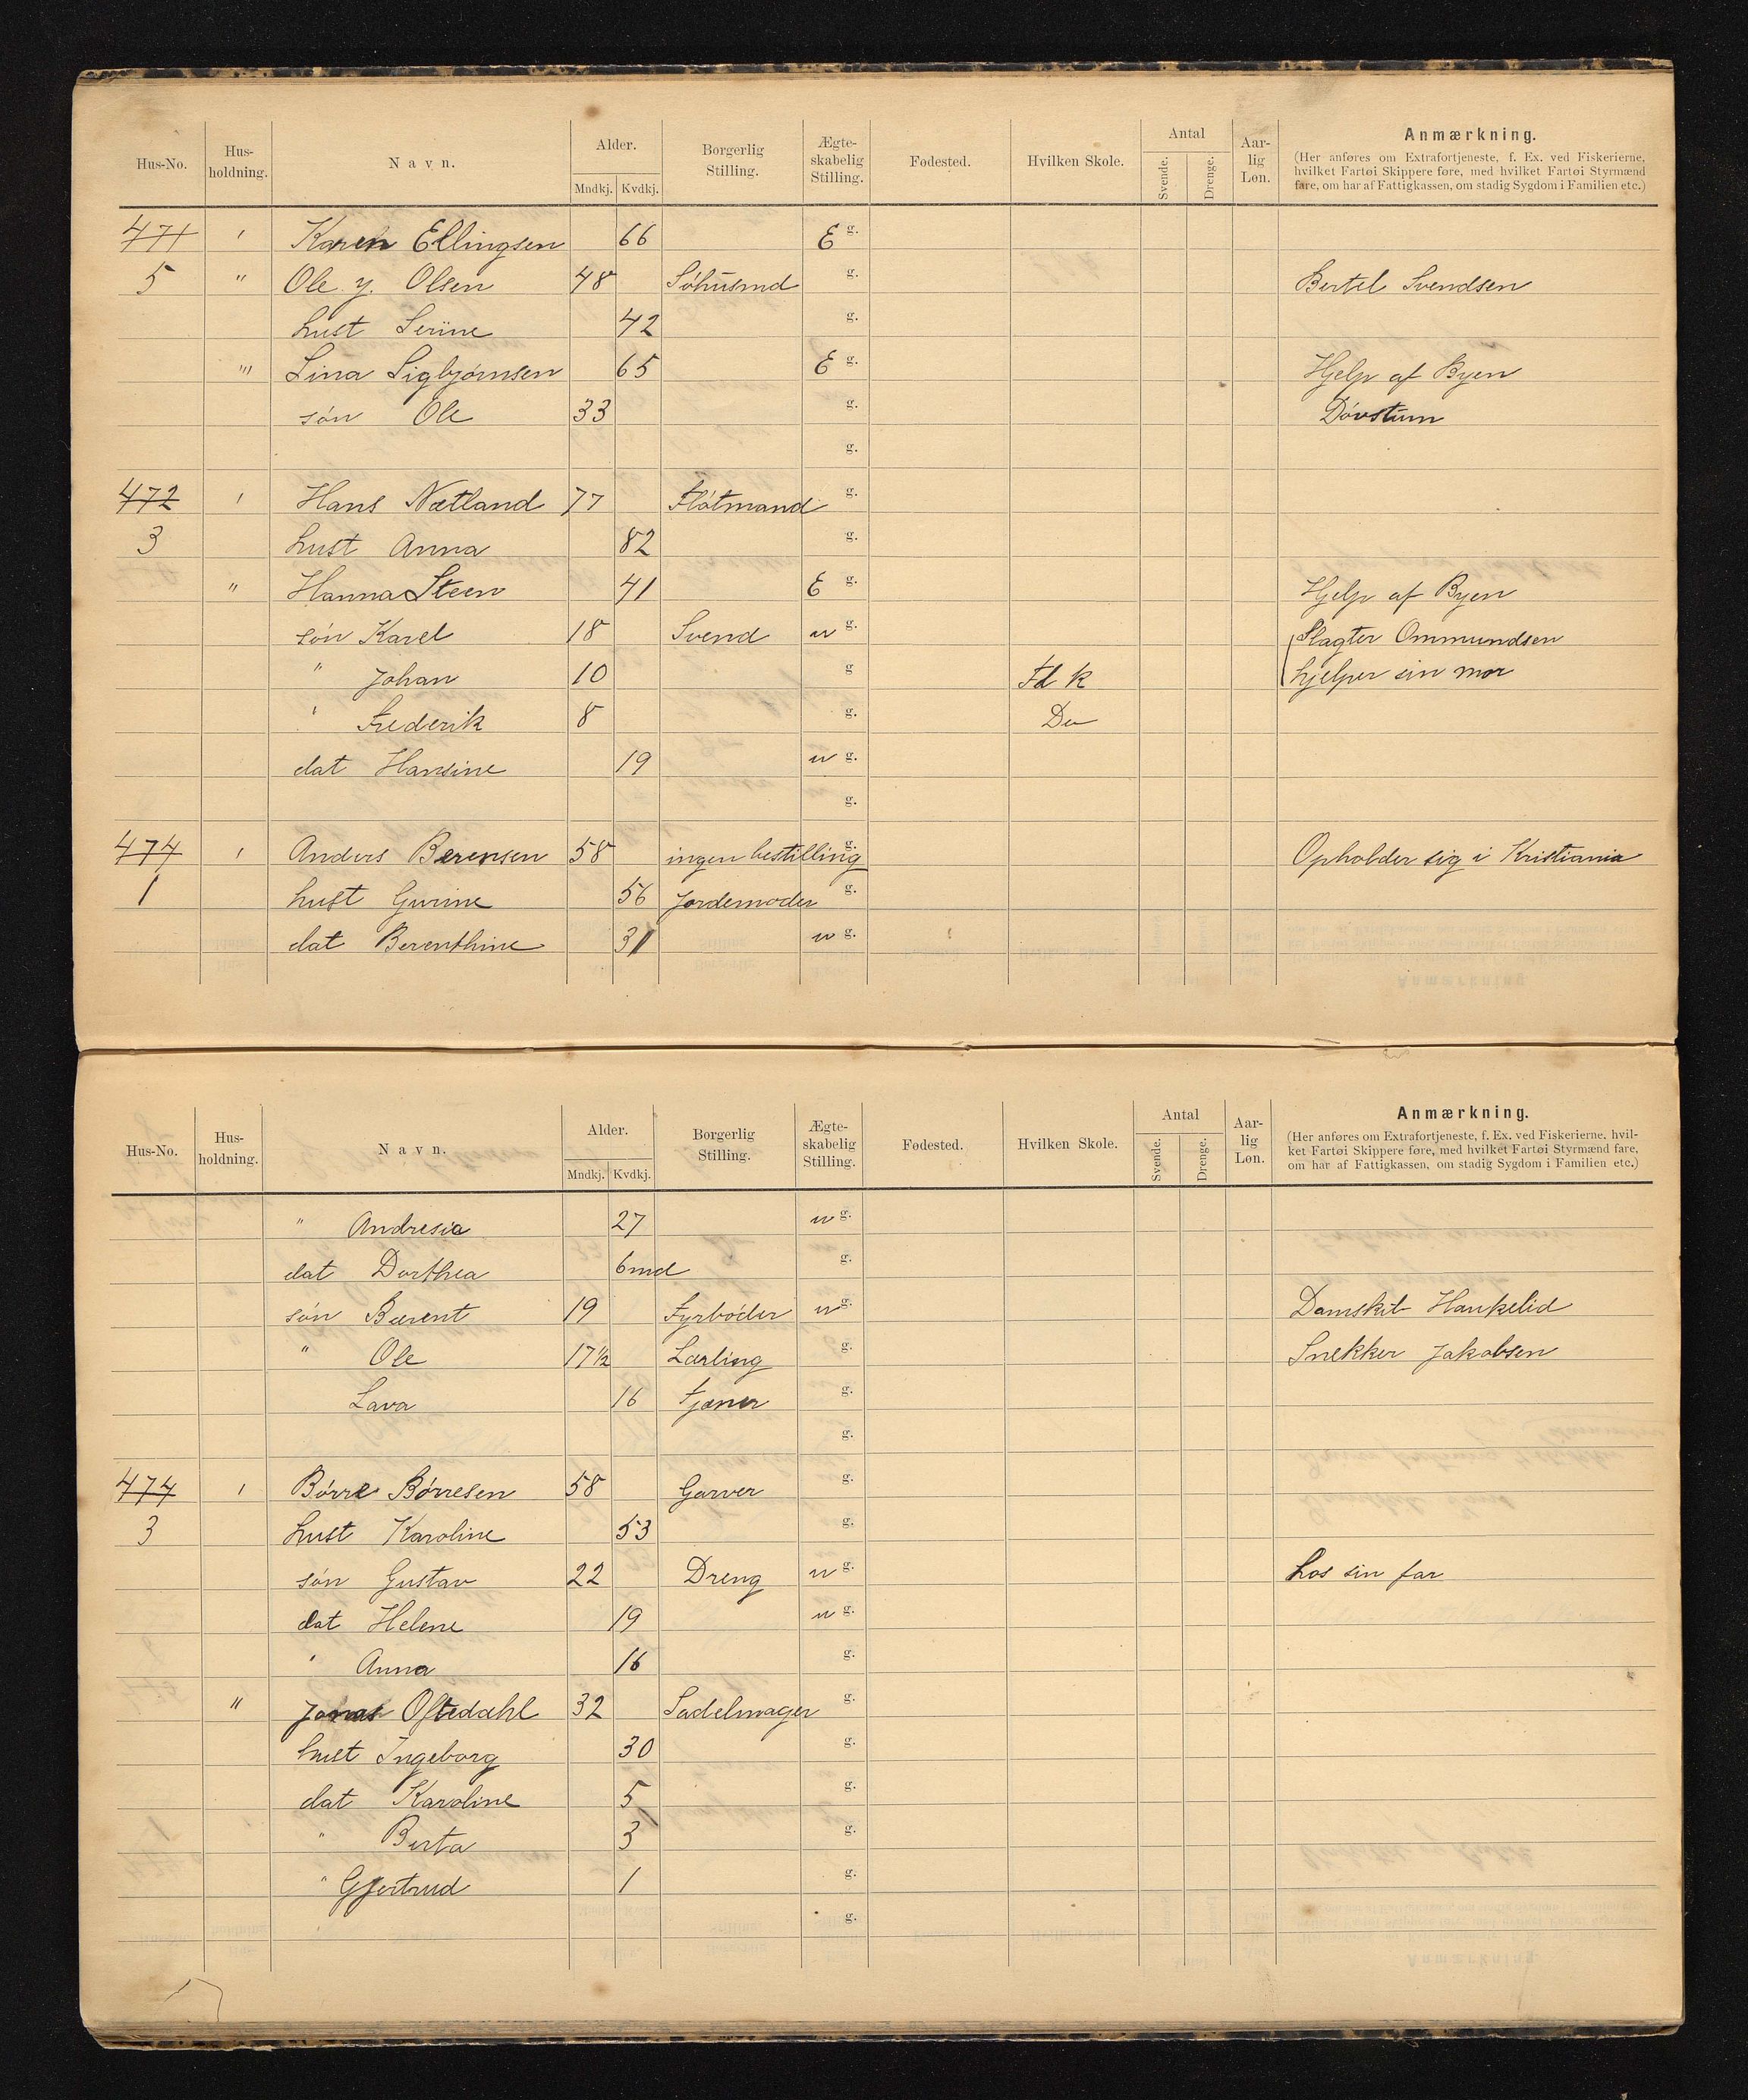 Hus-No. Hus-holdning. Navn. Alder. Mndkj. Kvdkj. Borgerlig Stilling. Ægte-skabelig Stilling. Fødested. Hvilken Skole. Antal Svende. Drenge. Aar-lig Løn. Anmærkning.
(Her anføres om Extrafortjeneste, f. Ex. ved Fiskerierne, hvilket Fartøi Skippere føre, med hvilket Fartøi Styrmænd fare, om har af Fattigkassen, om stadig Sygdom i Familien etc.)
471 ' Karen Ellingsen 66 E g.
5 " Ole y. Olsen 48 Söhusmd g. Bertel Svendsen
hust Serine 42 g.
"' Lina Sigbjørnsen 65 E g. Hjelp af Byen
søn Ole 33 g. Døvstum
g.
472 ' Hans Nætland 77 Fløtmand g.
3 hust Anna 82 g.
" Hanna Steen 41 E g. Hjelp af Byen
søn Karel 18 Svend u g. Slagter Ommundsen
" Johan 10 g Fd k hjelper sin mor
' Frederik 8 g. Do
dat Hansine 19 u g.
g.
474 ' Anders Berensen 58 ingen bestilling g. Opholder sig i Kristiania
1 hust Gurine 56 Jordemoder g.
dat Berenthine 31 u g.
Hus-No. Hus-holdning. Navn. Alder. Mndkj. Kvdkj. Borgerlig Stilling. Ægte-skabelig Stilling. Fødested. Hvilken Skole. Antal Svende. Drenge. Aar-lig Løn. Anmærkning.
(Her anføres om Extrafortjeneste, f. Ex. ved Fiskerierne, hvil-ket Fartøi Skippere føre, med hvilket Fartøi Styrmænd fare, om har af Fattigkassen, om stadig Sygdom i Familien etc.)
" Andresia 27 u g.
dat Dorthea 6 md g.
søn Berent 19 Fyrbøder u g. Damskib Haukelid
" Ole 17½ Lærling g. Snekker Jakobsen
Lava 16 tjener g.
g.
474 ' Børre Børresen 58 Garver g.
3 hust Karoline 53 g.
søn Gustav 22 Dreng u g. hos sin far
dat Helene 19 u g.
' Anna 16 g.
" Jonas Oftedahl 32 Sadelmager g.
hust Ingeborg 30 g.
dat Karoline 5 g.
" Berta 3 g.
" Gjertrud 1 g.
g.